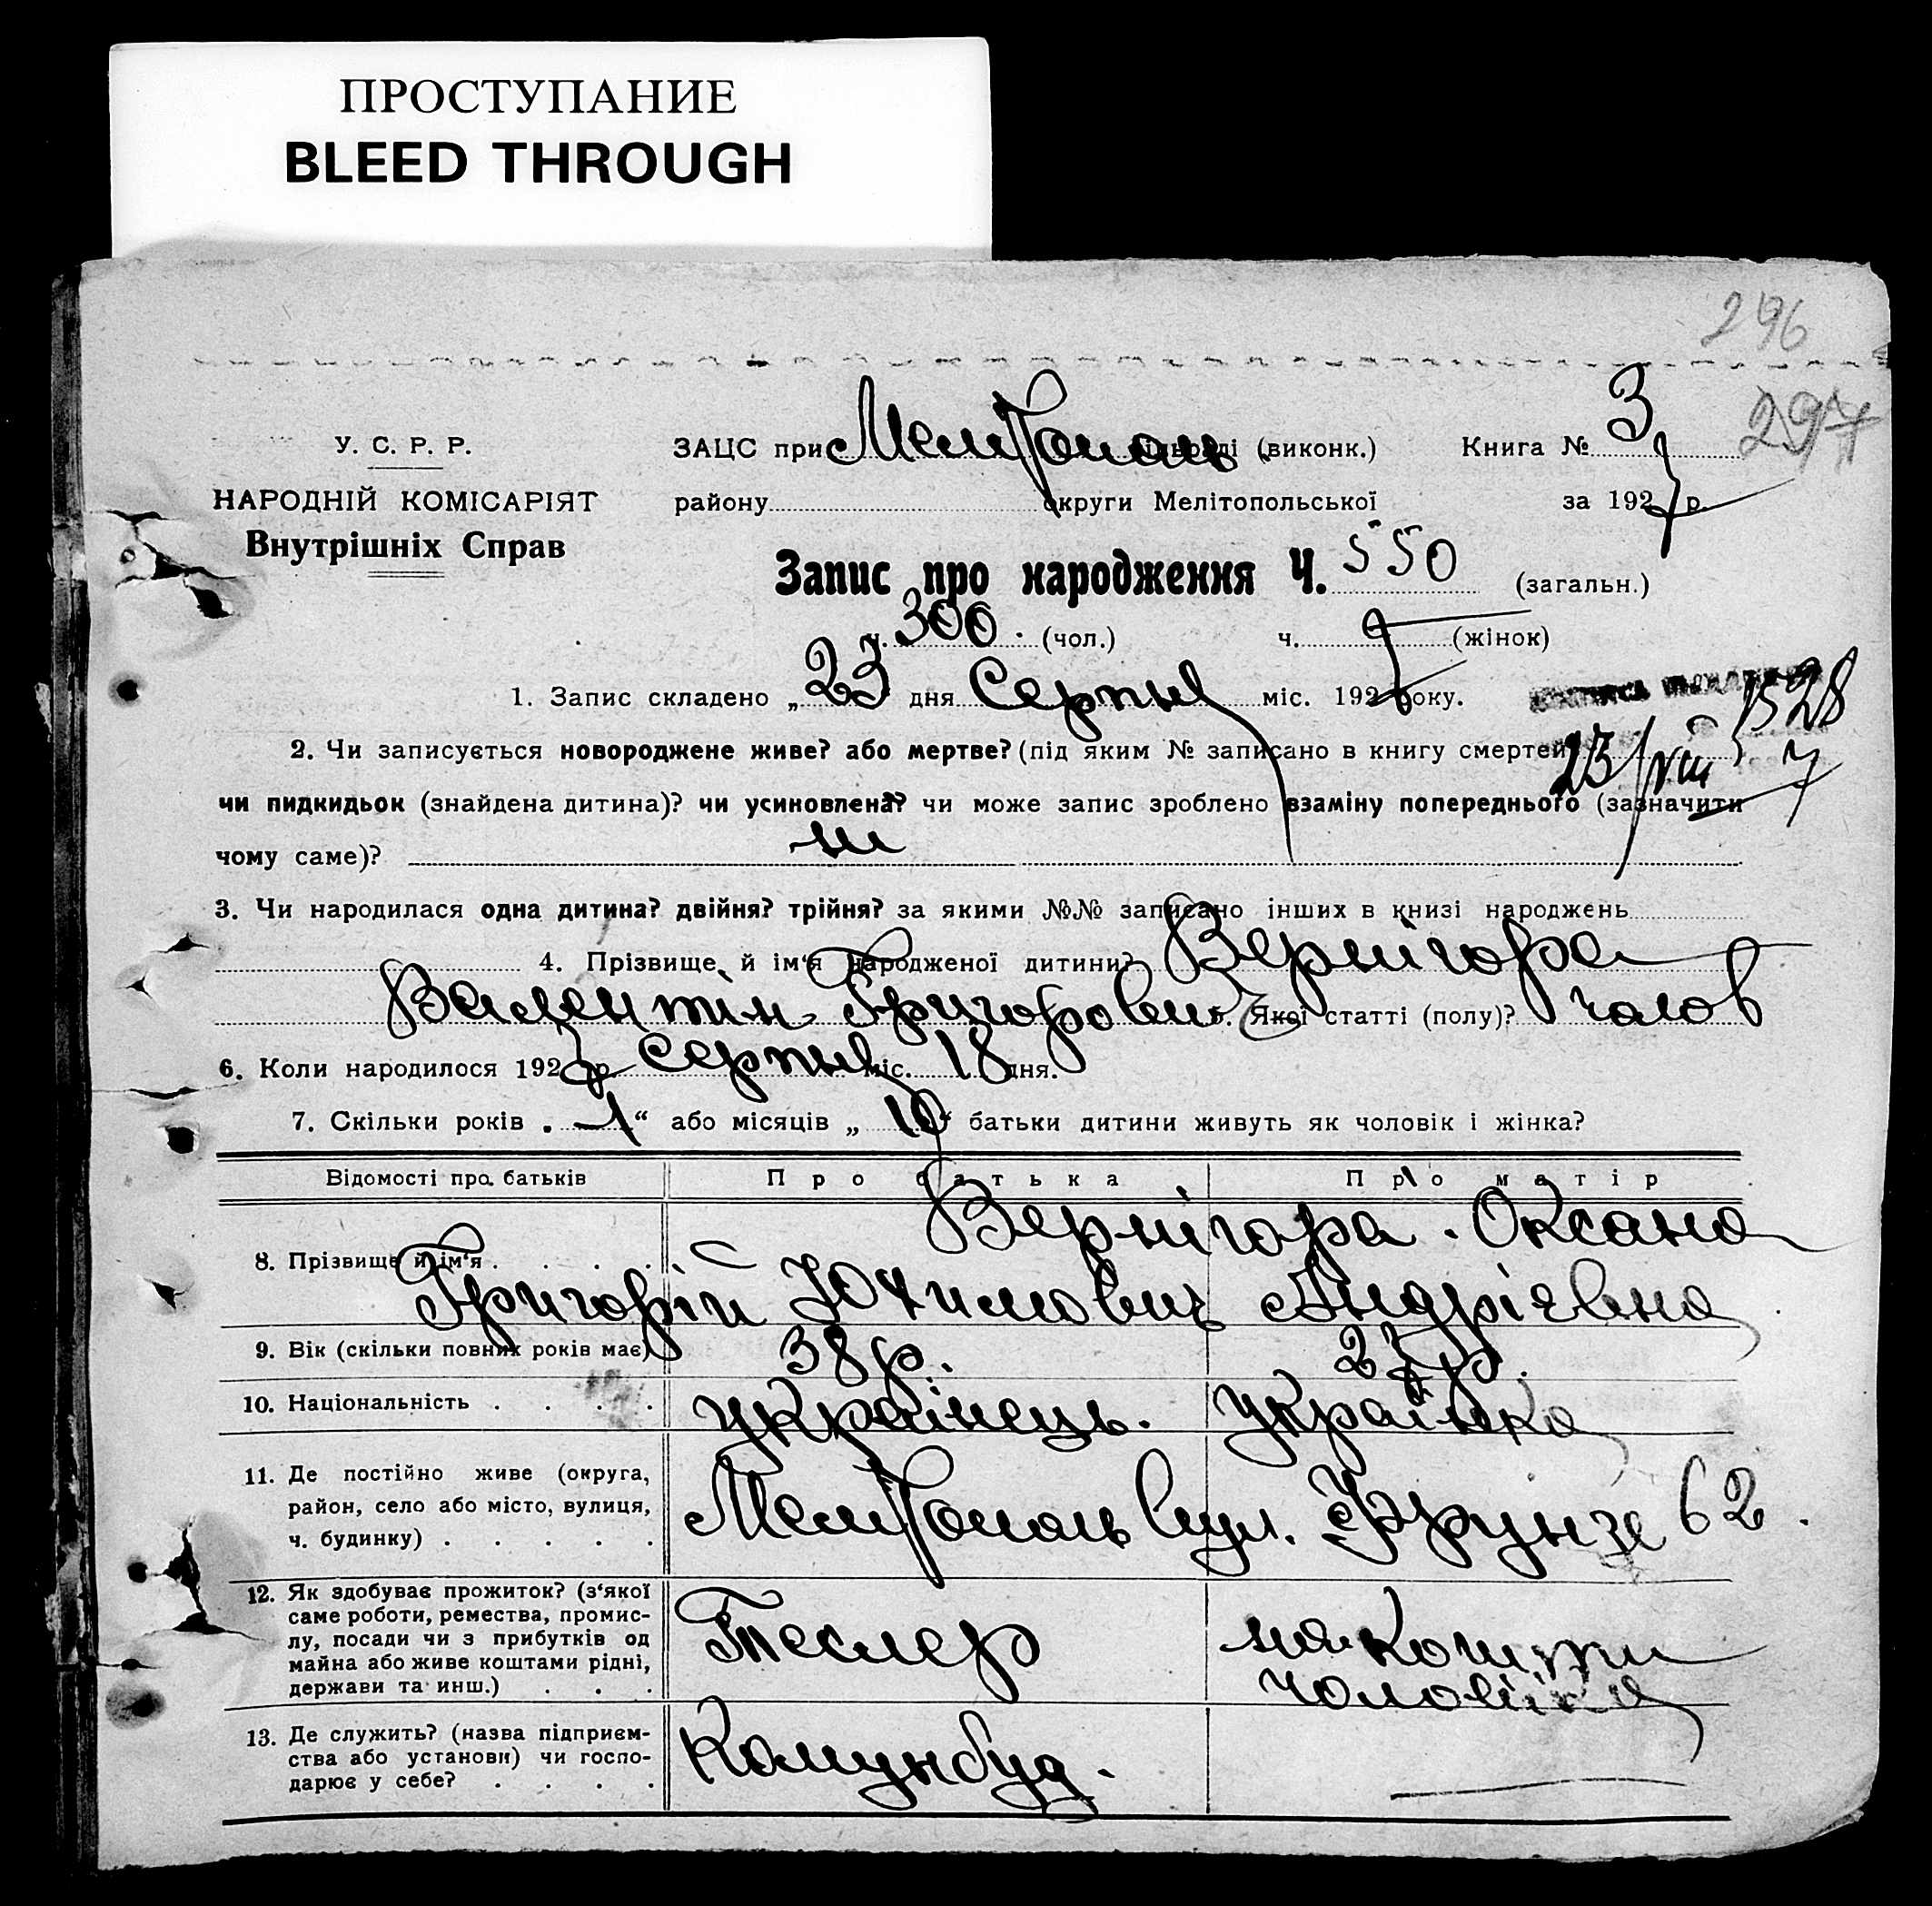 ПРОСТУПАНИЕ
BLEED THROUGH
296
297
У. С. Р. Р.
НАРОДНІЙ КОМІСАРІЯТ
Внутрішніх Справ
ЗАЦС при Мелітополь (виконк.) Книга № 3
району округи Мелітопольської за 1927 р.
Запис про народження Ч. 550 (загальн.)
ч. 300. (чол.) ч. (жінок)
1. Запис складено „23 дня Серпня міс. 1927 року.
1528
23/VIII 7
2. Чи записується новороджене живе? або мертве? (під яким № записано в книгу смертей
чи пидкидьок (знайдена дитина)? чи усиновлена? чи може запис зроблено взаміну попереднього (зазначити
чому саме)? ні
3. Чи народилася одна дитина? двійня? трійня? за якими №№ записано інших в книзі народжень
4. Прізвище й ім'я народженої дитини? Вернігора
Валентін Григорович 5. Якої статті (полу)? чолов
6. Коли народилося 1927 р. Серпня міс. 18 дня.
7. Скільки років „1“ або місяців „10“ батьки дитини живуть як чоловік і жінка?
Відомості про батьків Про батька Про матір
8. Прізвище й ім'я . . . . . Вернігора . Оксана
Григорій Юхимович Андрієвна
9. Вік (скільки повних років має) 38 р. 27 р.
10. Національність . . . . українець. українка
11. Де постійно живе (округа,
район, село або місто, вулиця,
ч. будинку) . . . . .
Мелітополь вул. Фрунзе 62.
12. Як здобуває прожиток? (з'якої
саме роботи, ремества, промис-
лу, посади чи з прибутків од
майна або живе коштами рідні,
держави та инш.) . . .
Тесляр на кошти
чоловіка
13. Де служить? (назва підприєм-
ства або установи) чи госпо-
дарює у себе? . . . .
Комунбуд.